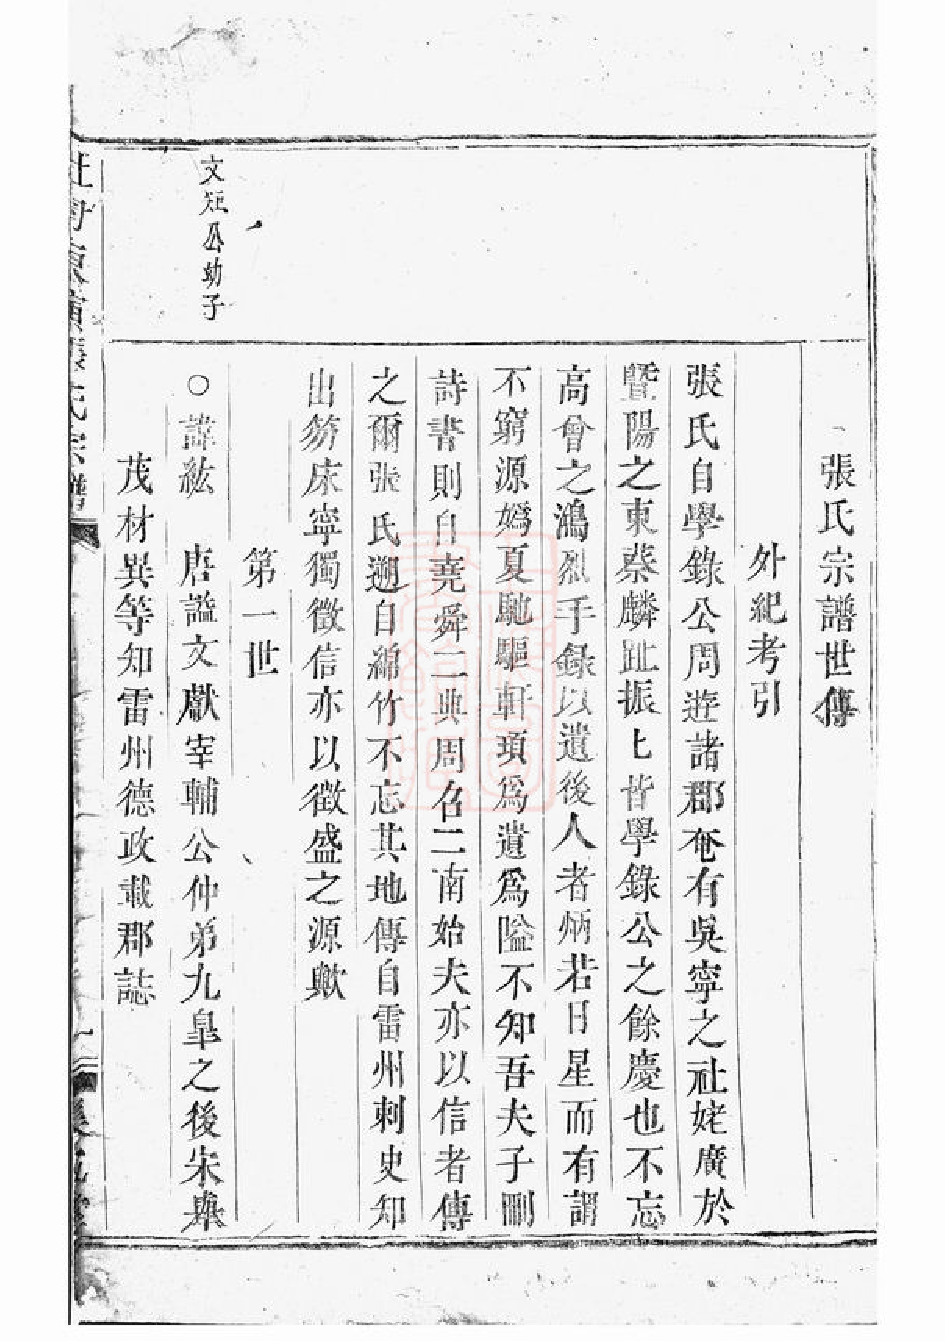 張氏宗譜世傳
外紀考引
張氏自學錄公周遊諸郡奄有吳寧之社姥廣於
暨陽之東蔡麟趾振七皆學錄公之餘慶也不忘
高曾之鴻烈手錄以遺後人者炳若日星而有謂
不窮源嬀夏馳驅軒頊爲遺爲隘不知吾夫子刪
詩書則自堯舜二典周召二南始夫亦以信者傳
之爾張氏遡自綿竹不忘其地傳自雷州刺史知
出笏床寧獨徵信亦以徵盛之源歟
第一世
文矩公幼子
○諱紘 唐謚文獻宰輔公仲弟九皐之後宋舉
茂材異等知雷州德政載郡誌
張氏宗譜